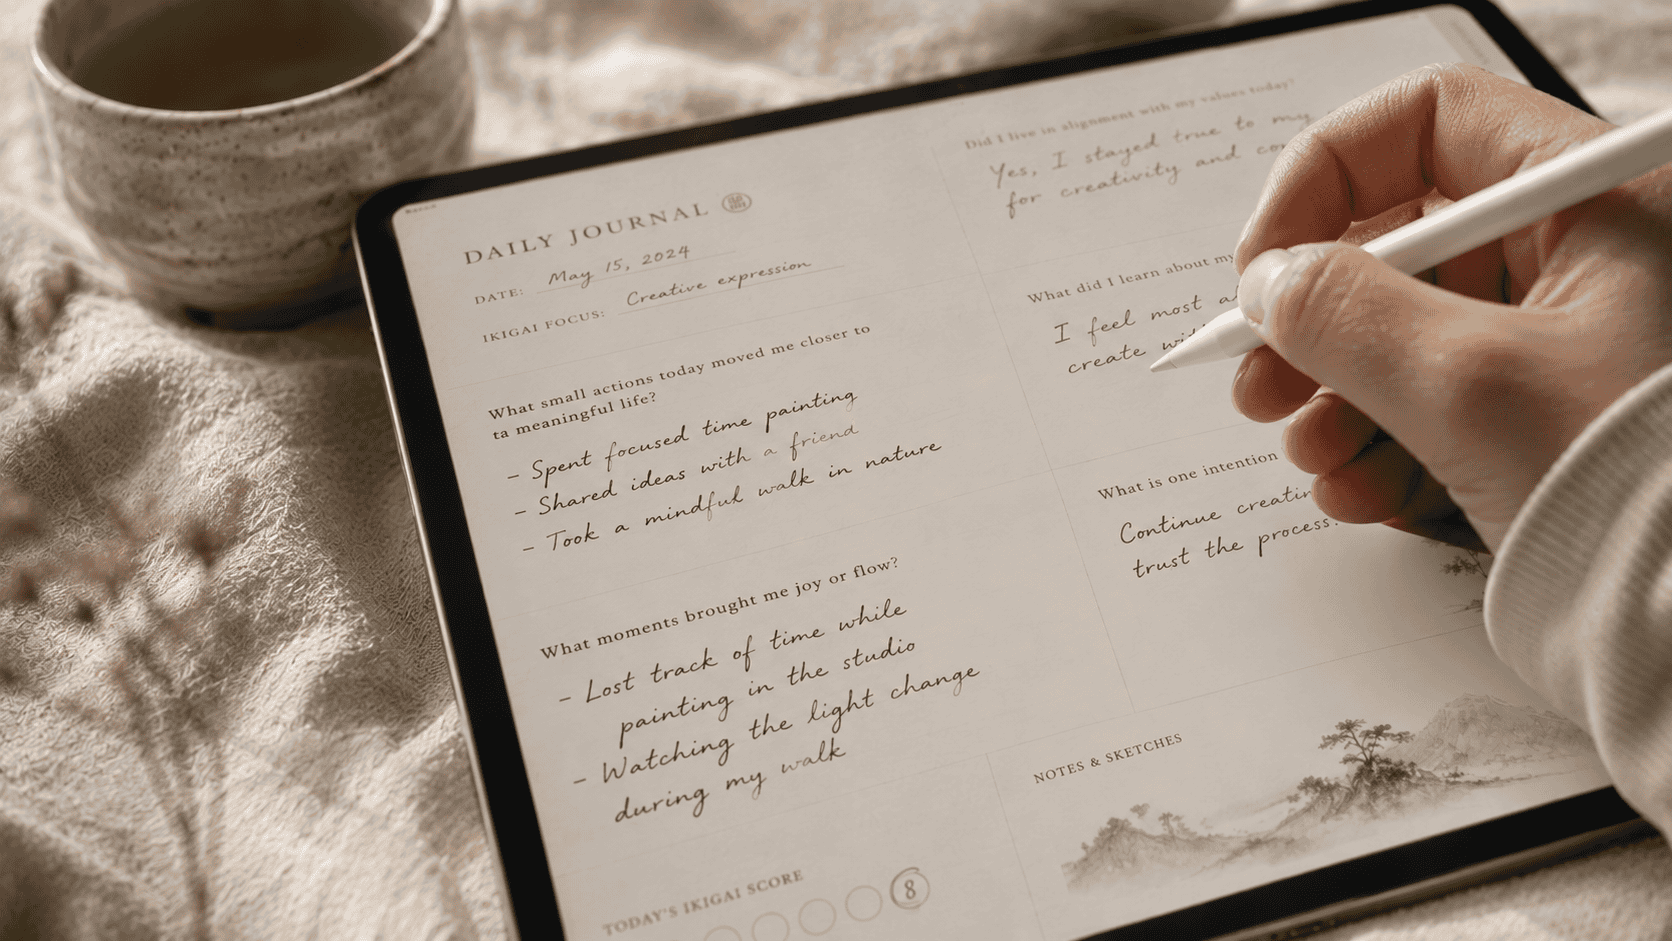 DAILY JOURNAL
DATE: May 15, 2024
IKIGAI FOCUS: Creative expression
What small actions today moved me closer to
ta meaningful life?
- Spent focused time painting
- Shared ideas with a friend
- Took a mindful walk in nature
What moments brought me joy or flow?
- Lost track of time while
painting in the studio
- Watching the light change
during my walk
TODAY'S IKIGAI SCORE
8
Did I live in alignment with my values today?
Yes, I stayed true to my
for creativity and
What did I learn about my
I feel most
create
What is one intention
Continue
trust the process.
NOTES & SKETCHES